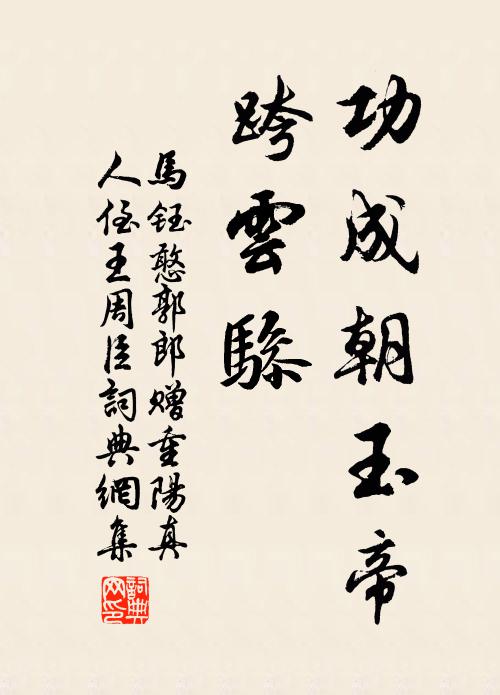 功成朝玉帝
跨雲驂
馬鈺憨郭郎贈重陽真
人侄王周臣詞典網集
詞典
网印